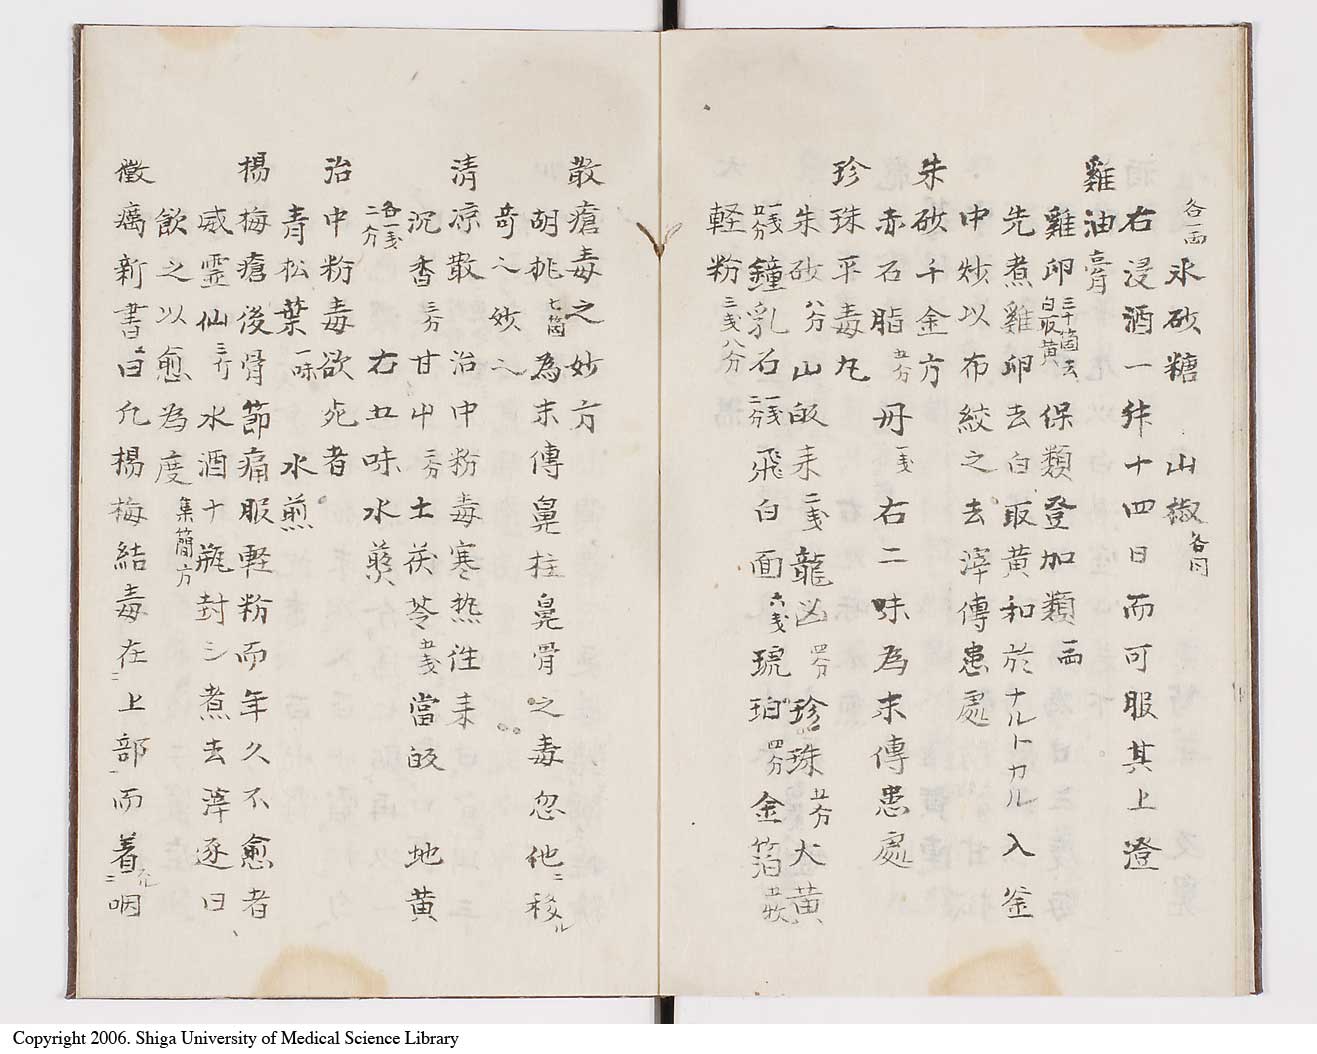 各一両 氷砂糖 山椒 各同
右浸酒一舛十四日而可服其上澄
雞油膏
雞卵 三十箇去白取黄 保類登加類 一両
先煮雞卵去白取黄和於ナルトカル入釜
中炒以布絞之去滓傳患處
朱砂千金方
赤石脂 五分 丹 一戋 右二味為末傳患處
珍珠平毒丸
朱砂 八分 山皈来 二戋 龍凶 四分 珍珠 五分 大黄
一戋五分 鐘乳石 一戋二分 飛白面 六戋 琥珀 四分 金箔 五枚
軽粉 三戋八分
散瘡毒之妙方
胡桃 七箇 為末傳鼻柱鼻骨之毒忽他ニ移ル
奇々妙々
清凉散 治中粉毒寒热往来
沉香 三分 甘艸 二分 土茯苓 五戋 當皈 地黄
各一戋二分 右五味水煎
治中粉毒欲死者
青松葉 一味 水煎
楊梅瘡後骨節痛服軽粉而年久不愈者
威霊仙 三斤 水酒十瓶封シ煮去滓逐日
飲之以愈為度 集簡方
黴癘新書ニ曰凢楊梅結毒在ニ上部ニ而着ルニ咽
Copyright 2006. Shiga University of Medical Science Library